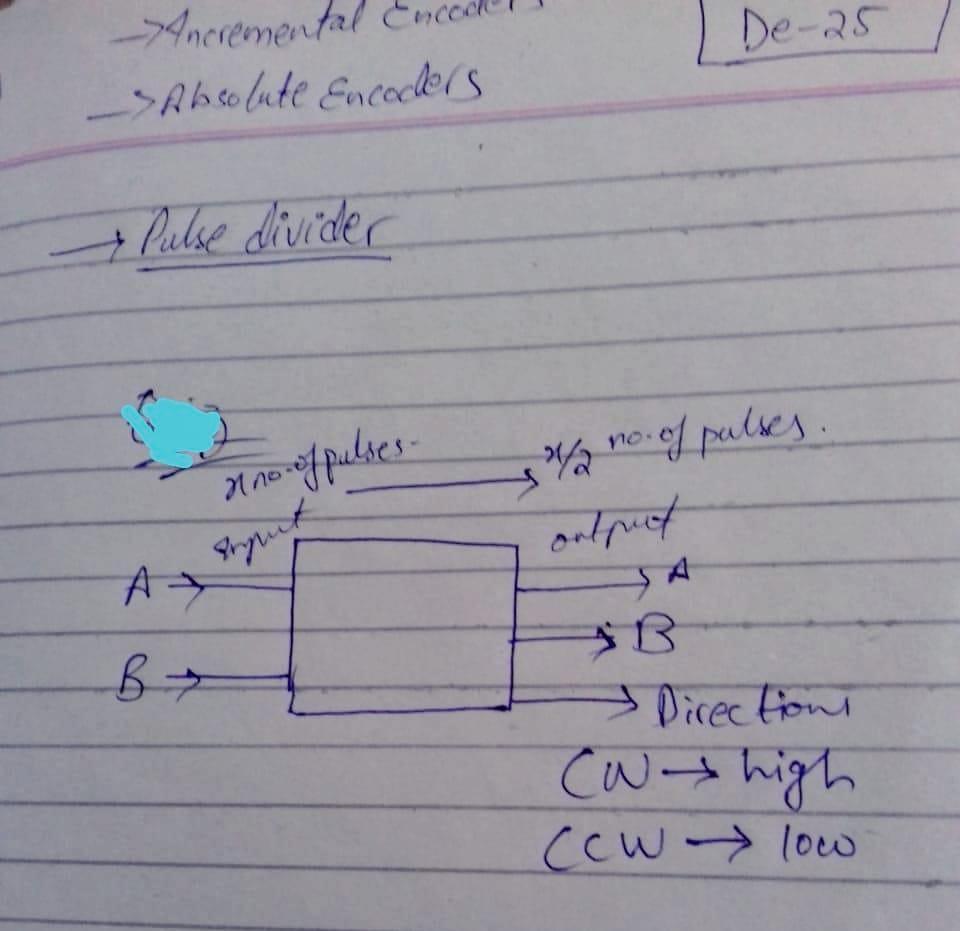 →Incremental Encoders
De-25
→Absolute Encoders
→ Pulse divider
x no. of pulses. → x/2 no. of pulses.
Input output
A → → A
B → → B
→ Directions
CW → high
CCW → low